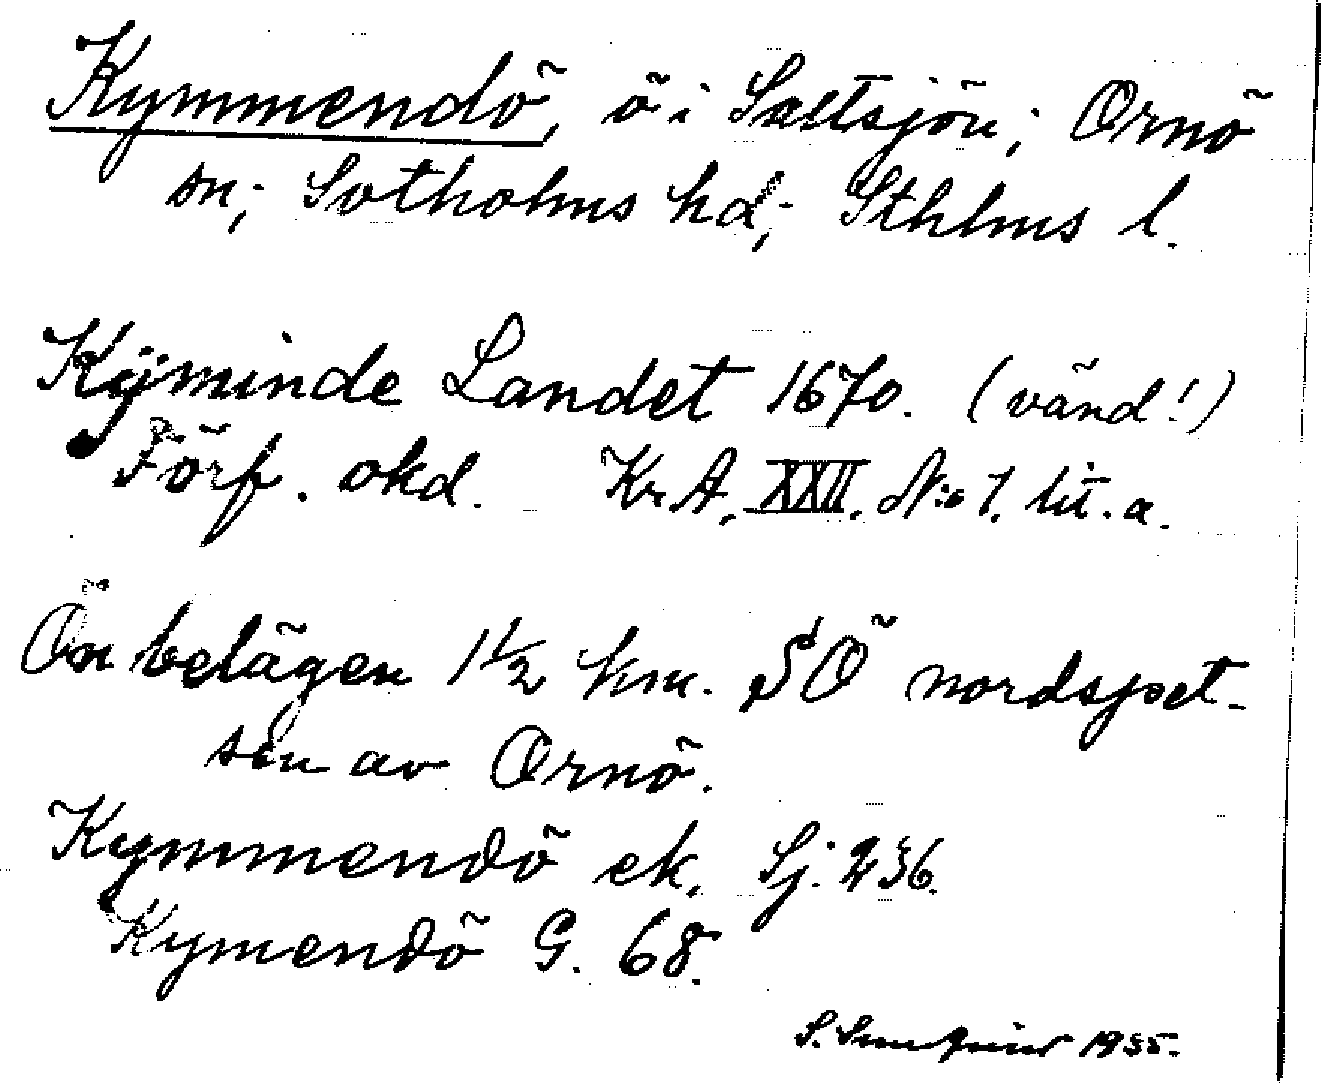 Kymmendö, ö i Saltsjön; Ornö
sn; Sotholms hd; Sthlms l.
Kÿminde Landet 1670. (vänd!)
Förf. okd. Kr. A. XXII. N:o 1. lit. a.
Ön belägen 1 1/2 km. SÖ nordspet-
sen av Ornö.
Kymmendö ek. Sj. 236.
Kymendö G. 68.
S. 1935.